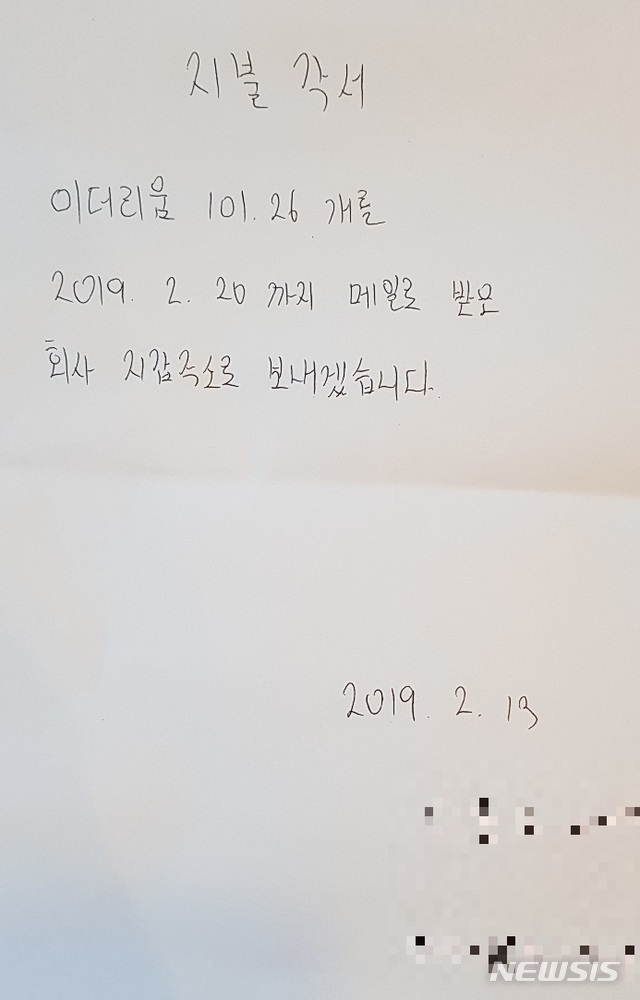 지불 각서
이더리움 101.26 개를
2019. 2. 20 까지 메일로 받은
회사 지갑주소로 보내겠습니다.
2019. 2. 13
NEWSIS